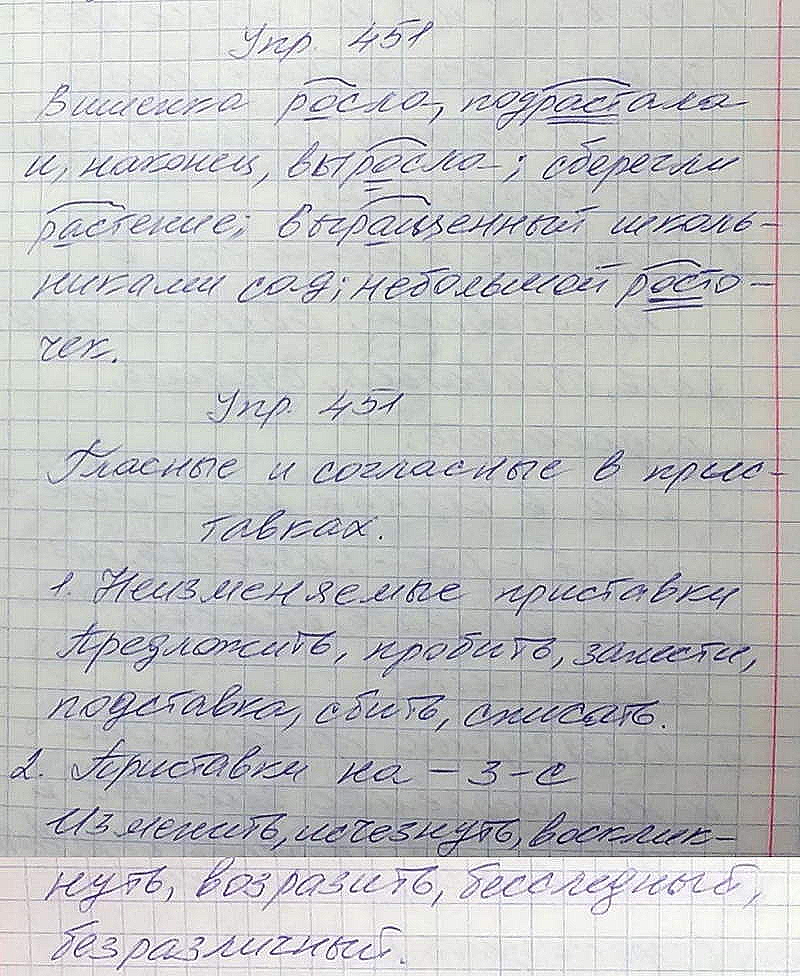 Упр. 451
Вишенка росла, подрастала
и, наконец, выросла; сберегли
растение; выращенный школь-
никами сад; небольшой росто-
чек.
Упр. 451
Гласные и согласные в прис-
тавках.
1. Неизменяемые приставки
Предложить, пробить, занести,
подставка, сбить, списать.
2. Приставки на -з-с
Изменить, исчезнуть, восклик-
нуть, возразить, бесследный,
безразличный.